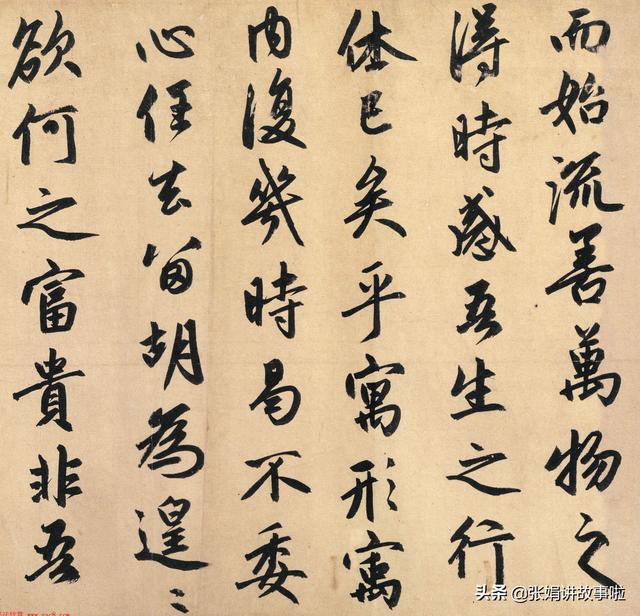 而始流善萬物之
得時感吾生之行
休已矣乎寓形寓
内復幾時曷不委
心任去留胡為遑〻
欲何之富貴非吾
头条 @张娟讲故事啦